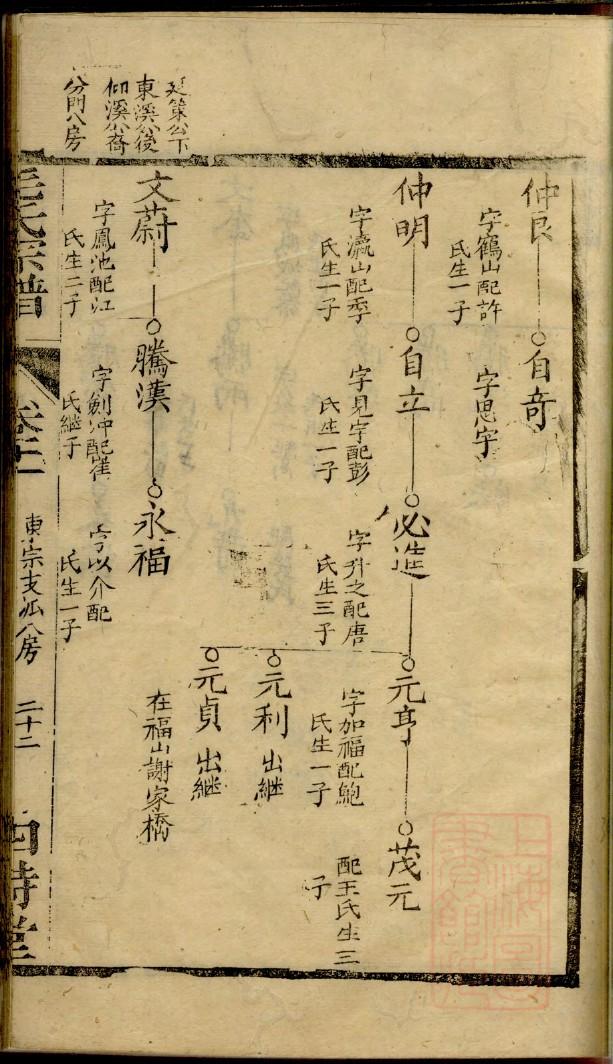 廷策公下
東溪公後
仰溪公裔
分門八房
仲良
字鶴山配許
氏生一子
自奇
字思宇
仲明
字瀛山配季
氏生一子
自立
字見宇配彭
氏生一子
必造
字升之配唐
氏生三子
元亨
字加福配鮑
氏生一子
茂元
配王氏生三
子
元利 出繼
元貞 出繼
在福山謝家橋
文蔚
字鳳池配江
氏生二子
騰漢
字劍冲配崔
氏繼子
永福
字以介配
氏生一子
氏宗譜
東宗支派八房
二十二